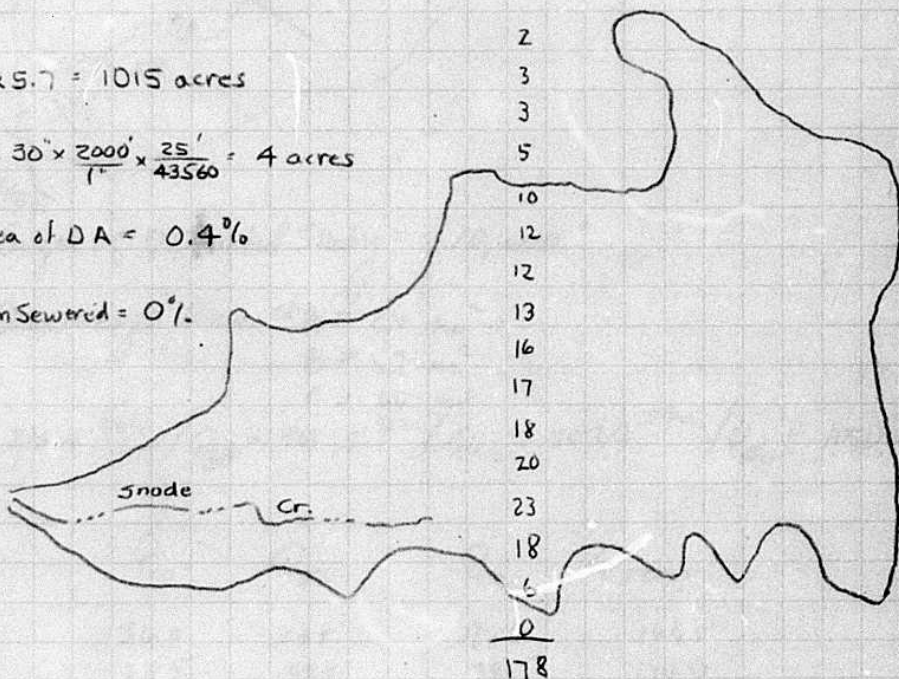 x 5.7 = 1015 acres
30" x 2000'/1" x 25'/43560 = 4 acres
ea of DA = 0.4%
m Sewered = 0%
2
3
3
5
10
12
12
13
16
17
18
20
23
18
6
0
178
Snode Cr.